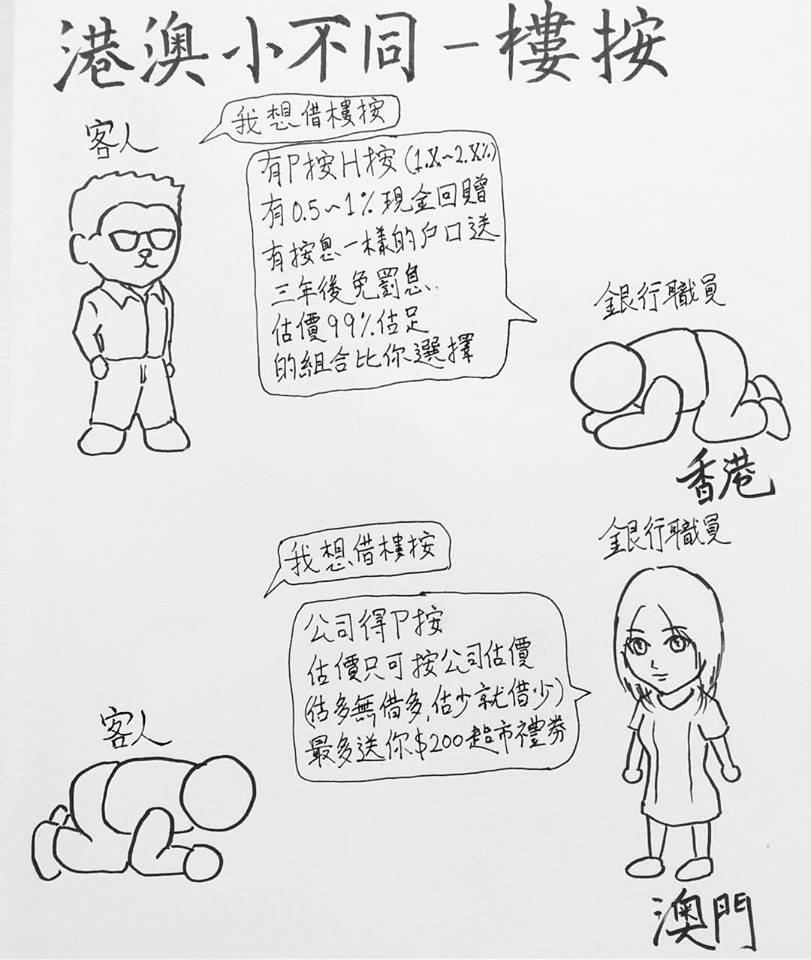 港澳小不同－樓按
客人
我想借樓按
有P按H按(1.X~2.X%)
有0.5~1%現金回贈
有按息一樣的户口送
三年後免罰息
估價99%估足
的組合比你選擇
銀行職員
香港
銀行職員
我想借樓按
公司得P按
估價只可按公司估價
(估多無借多,估少就借少)
最多送你$200超市禮券
客人
澳門